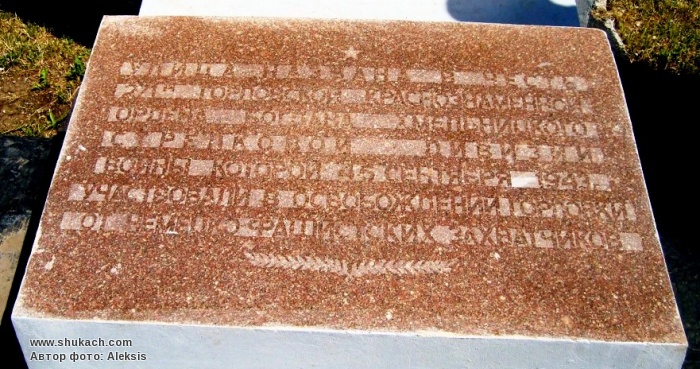 УЛИЦА НАЗВАНА В ЧЕСТЬ
ГОРЛОВСКОЙ КРАСНОЗНАМЕННОЙ
ОРДЕНА БОГДАНА ХМЕЛЬНИЦКОГО
СТРЕЛКОВОЙ ДИВИЗИИ
ВОИНЫ КОТОРОЙ 4-5 СЕНТЯБРЯ 1943 Г.
УЧАСТВОВАЛИ В ОСВОБОЖДЕНИИ ГОРЛОВКИ
ОТ НЕМЕЦКО-ФАШИСТСКИХ ЗАХВАТЧИКОВ
www.shukach.com
Автор фото: Aleksis